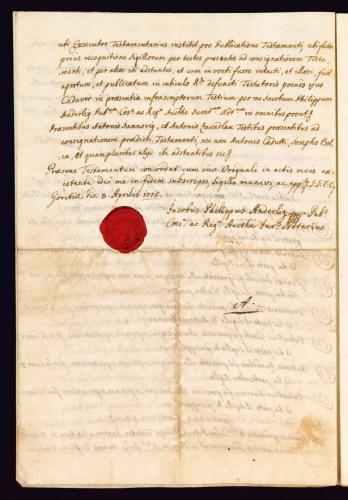 uti Executor Testamentarius institit pro Publicatione Testamenti, ubi facta
prius recognitione sigillorum per testes presentes ad consignationem Testa-
menti, et per alios ibi adstantes, et cum inventi fuere intacti, et illaesi, fuit
apertum, et publicatum in cubiculo Rdi defuncti Testatoris poenes ejus
Cadaver in presentia infrascriptorum Testium per me Jacobum Philippum
Anderlig Pubcum Ceso ac Rego Aucthe Juratum Notum in omnibus prout
Praesentibus Antonio, et Antonio Testibus presentibus ad
consignationem praedicti Testamenti, nec non Antonio Caduti, Josepho Bol,
ca, et quampluribus aliis ibi adstantibus
Praesens Testamentum concordat cum suo Originali in actis meis ex-
istente dei me in fidem subscripsi, sigillo munivi, ac
Goritiae die 8. Aprilis 1775.
Jacobus Philippus Anderlig Pubs
Ceso ac Rego Auctha Jurs Notarius
A.